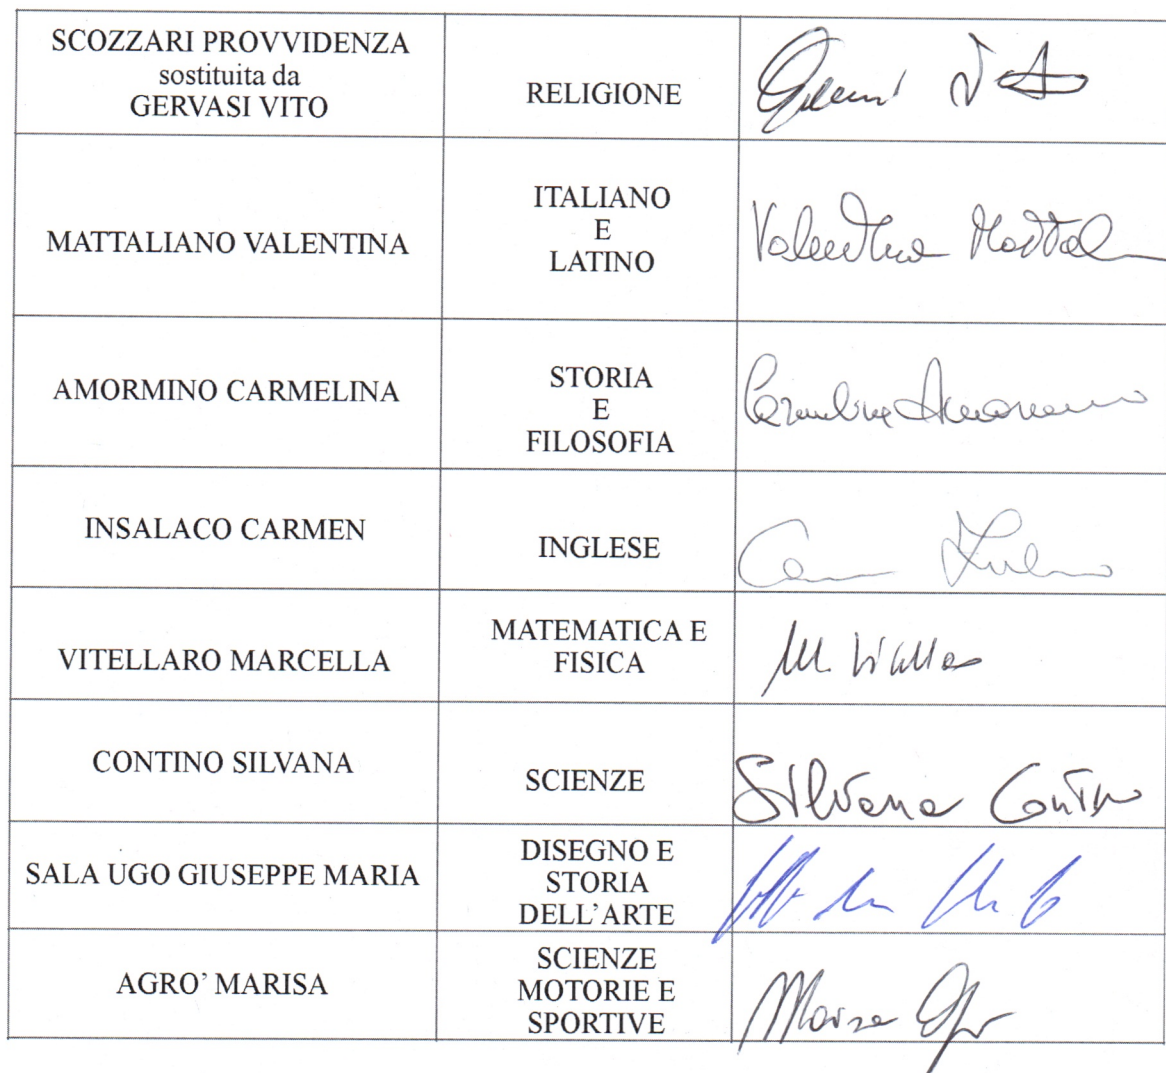 SCOZZARI PROVVIDENZA
sostituita da
GERVASI VITO
RELIGIONE
MATTALIANO VALENTINA
ITALIANO
E
LATINO
Valentina Mattal
AMORMINO CARMELINA
STORIA
E
FILOSOFIA
Carmelina Amormino
INSALACO CARMEN
INGLESE
VITELLARO MARCELLA
MATEMATICA E
FISICA
CONTINO SILVANA
SCIENZE
Silvana Contino
SALA UGO GIUSEPPE MARIA
DISEGNO E
STORIA
DELL’ARTE
AGRO’ MARISA
SCIENZE
MOTORIE E
SPORTIVE
Marisa